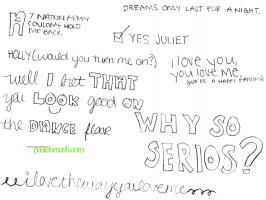 DREAMS ONLY LAST FOR A NIGHT.
7 NATION ARMY
COULDN'T HOLD
ME BACK.
YES JULIET
HOLLY (would you turn me on?)
i love you,
you love me.
(WE'RE A HAPPY FAMILY)
well I bet THAT
you LOOK good ON
the DANCE floor
WHY SO
SERIOS?
pastelsmash.com
iilovethewayyouloveme